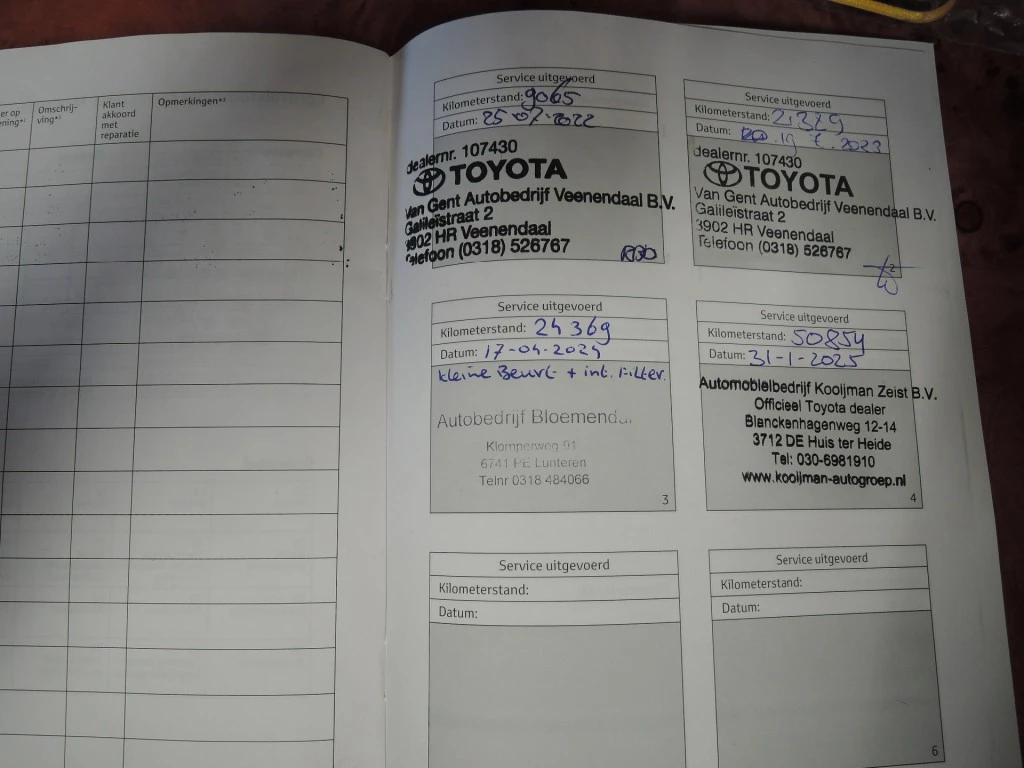 er op
ening*¹
Omschrij-
ving*²
Klant
akkoord
met
reparatie
Opmerkingen*³
Service uitgevoerd
Kilometerstand: 9065
Datum: 25-07-2022
dealernr. 107430
TOYOTA
Van Gent Autobedrijf Veenendaal B.V.
Galileïstraat 2
3902 HR Veenendaal
Telefoon (0318) 526767
Service uitgevoerd
Kilometerstand: 21379
Datum: 19 7.2023
dealernr. 107430
TOYOTA
Van Gent Autobedrijf Veenendaal B.V.
Galileïstraat 2
3902 HR Veenendaal
Telefoon (0318) 526767
Service uitgevoerd
Kilometerstand: 24369
Datum: 17-04-2024
kleine Beurt + int. Filter.
Autobedrijf Bloemendaal
Klomperweg 91
6741 PE Lunteren
Telnr 0318 484066
3
Service uitgevoerd
Kilometerstand: 50854
Datum: 31-1-2025
Automobielbedrijf Kooijman Zeist B.V.
Officieel Toyota dealer
Blanckenhagenweg 12-14
3712 DE Huis ter Heide
Tel: 030-6981910
www.kooijman-autogroep.nl
4
Service uitgevoerd
Kilometerstand:
Datum:
Service uitgevoerd
Kilometerstand:
Datum:
6